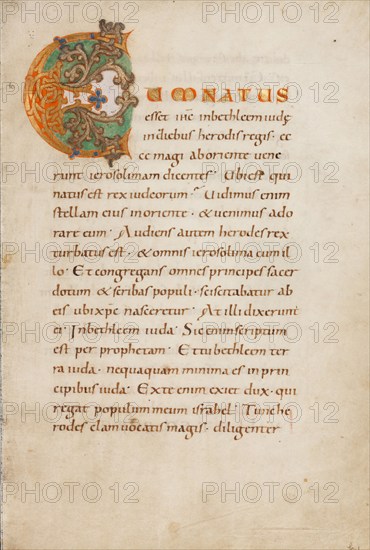 CUM NATUS
esset ihc inbethleem iudę
indiebus herodis regis · ec
ce magi aboriente vene
runt ierosolimam dicentes · Ubi est qui
natus est rex iudeorum · Uidimus enim
stellam eius inoriente · & venimus ado
rare eum · Audiens autem herodes rex
turbatus est · & omnis ierosolima cum il
lo · Et congregans omnes principes sacer
dotum & scribas populi · sciscitabatur ab
eis ubi xpc nasceretur · At illi dixerunt
ei · Inbethleem iuda · Sic enim scriptum
est per prophetam · Et tu bethleem ter
ra iuda · nequaquam minima es in prin
cipibus iuda · Ex te enim exiet dux · qui
regat populum meum israhel · Tunc he
rodes clam vocatis magis · diligenter
PHOTO 12